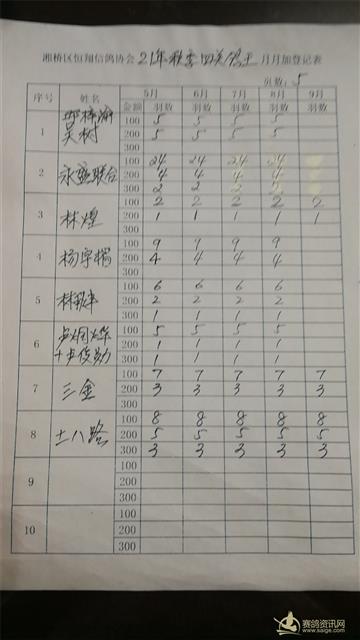 湘桥区恒翔信鸽协会 21年秋季四关鸽王 月月加登记表
页数：5
序号 姓名 5月 6月 7月 8月 9月
金额 羽数 羽数 羽数 羽数 羽数
1 吴树 100 5 5 5 5
200 5 5 5 5
300
2 永盛联合 100 24 24 24 24
200 4 4 4 4
300 2 2 2 2
3 林煌 100 2 2 2 2 2
200 1 1 1 1 1
300
4 杨宇 100 9 9 9 9
200 4 4 4 4
300
5 100 6 6 6 6
200 2 2 2 2
300 1 1 1 1
6 100 5 5 5 5
200 1 1 1 1
300 1 1 1 1
7 三金 100 7 7 7 7 7
200 3 3 3 3 3
300
8 土八路 100 8 8 8 8 8
200 5 5 5 5 5
300 3 3 3 3 3
9 100
200
300
10 100
200
300
赛鸽资讯网
www.saige.com